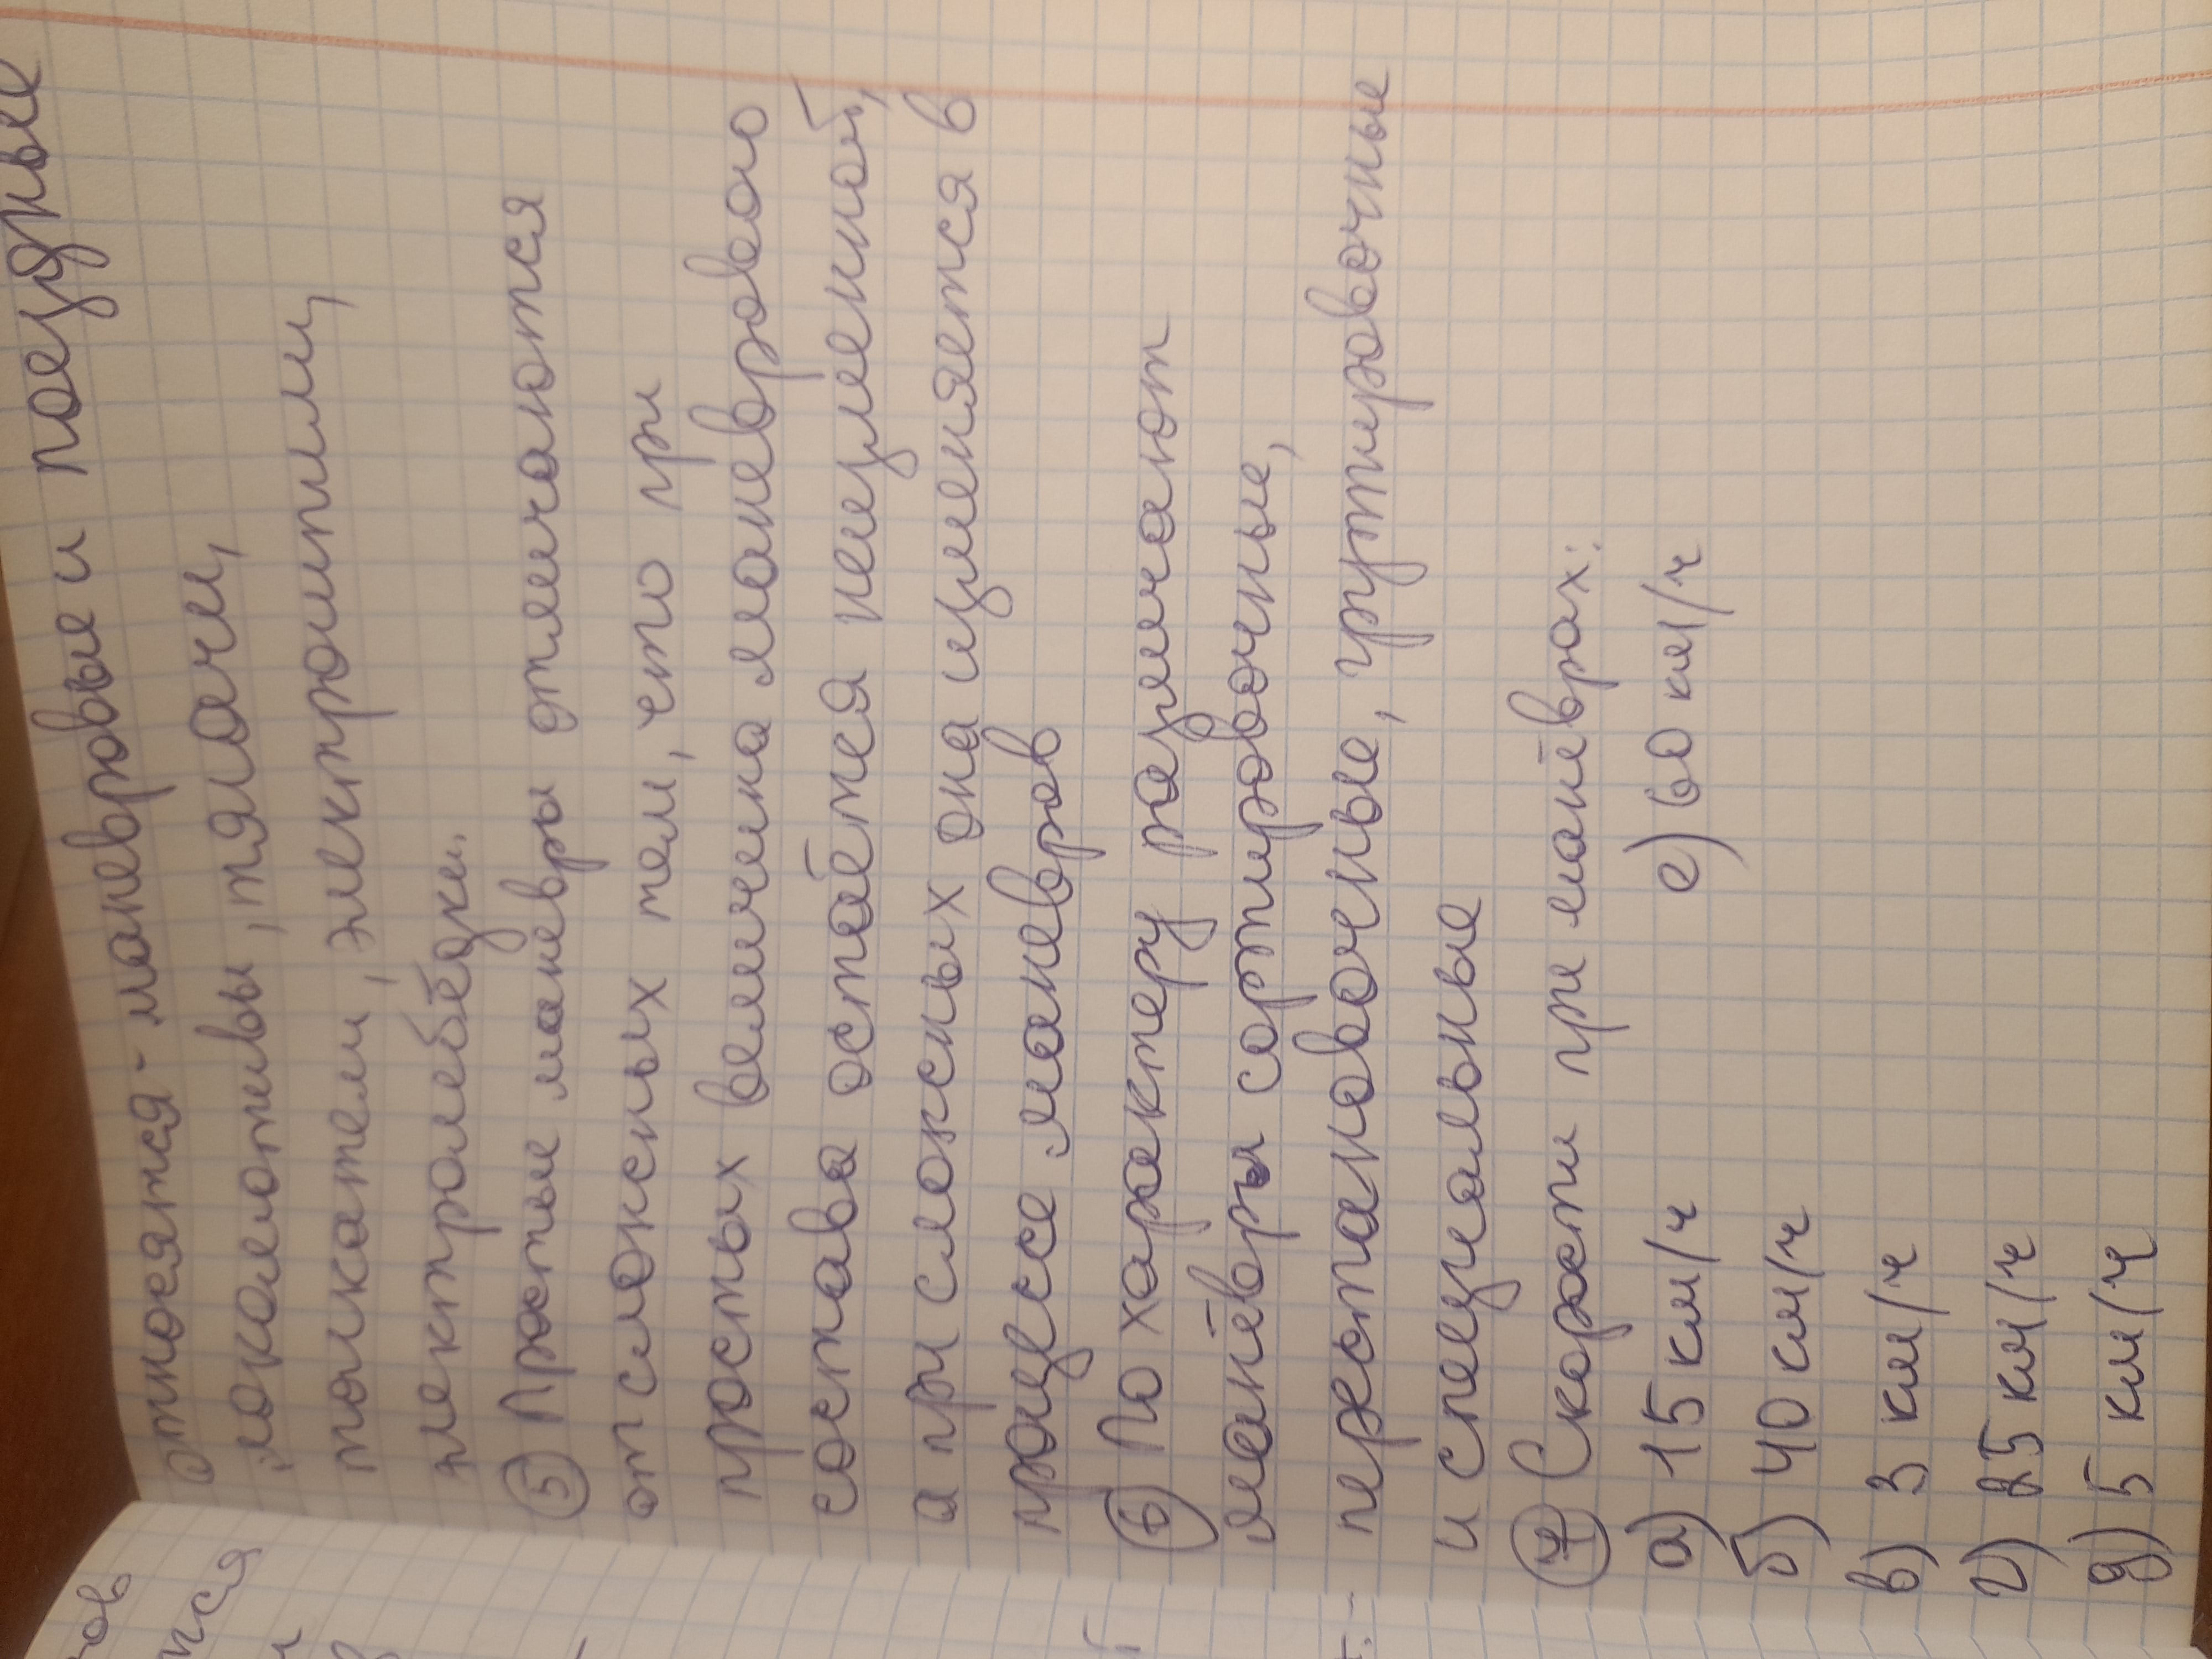 относятся - маневровые и поездные
локомотивы, тягачи,
толкатели, электрошпили,
электролебёдки.
⑤ Простые маневры отличаются
от сложных тем, что при
простых величина маневрового
состава остаётся неизменной,
а при сложных она изменяется в
процессе маневров
⑥ По характеру различают
манёвры сортировочные,
перестановочные, группировочные
и специальные
⑦ Скорости при манёврах:
а) 15 км/ч е) 60 км/ч
б) 40 км/ч
в) 3 км/ч
г) 25 км/ч
д) 5 км/ч